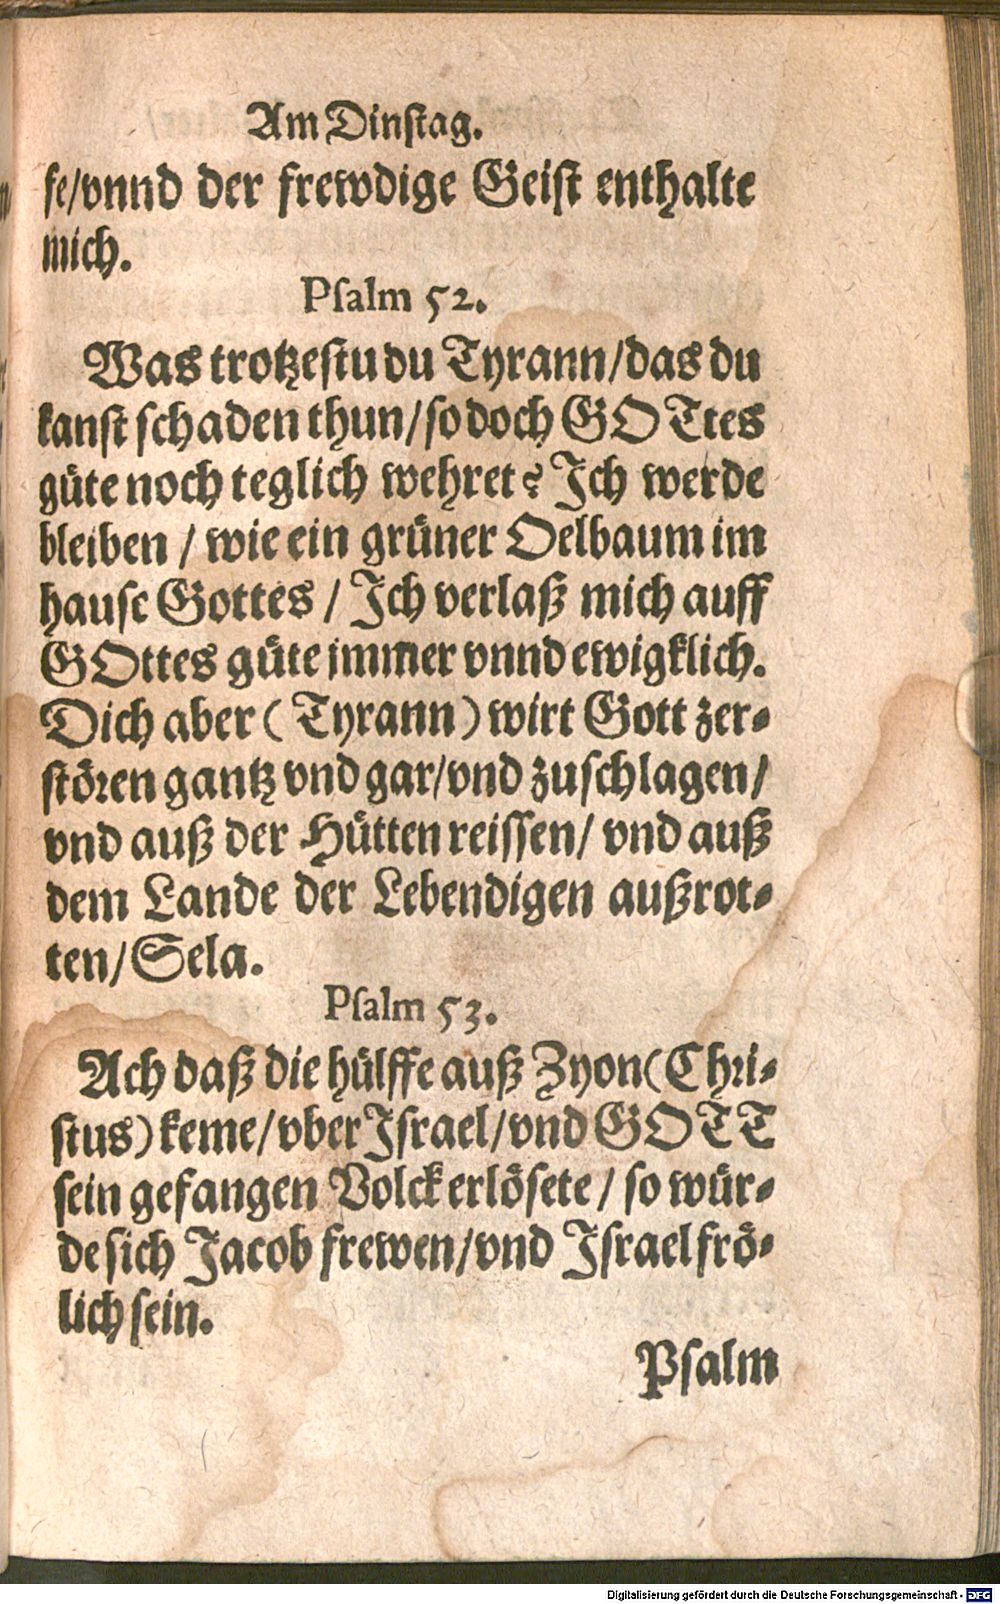 Am Dinstag.
fe/vnnd der frewdige Geist enthalte
mich.
Psalm 52.
Was trotzestu du Tyrann/das du
kanst schaden thun/so doch GOTtes
güte noch teglich wehret? Ich werde
bleiben / wie ein grüner Oelbaum im
hause Gottes / Ich verlaß mich auff
GOttes güte immer vnnd ewigklich.
Dich aber ( Tyrann ) wirt Gott zer-
stören gantz vnd gar/vnd zuschlagen/
vnd auß der Hütten reissen/ vnd auß
dem Lande der Lebendigen außrot-
ten/Sela.
Psalm 53.
Ach daß die hülffe auß Zyon(Chri-
stus) keme/vber Israel/vnd GOTT
sein gefangen Volck erlösete / so wür-
de sich Jacob frewen/vnd Israel frö-
lich sein.
Psalm
Digitalisierung gefördert durch die Deutsche Forschungsgemeinschaft - DFG